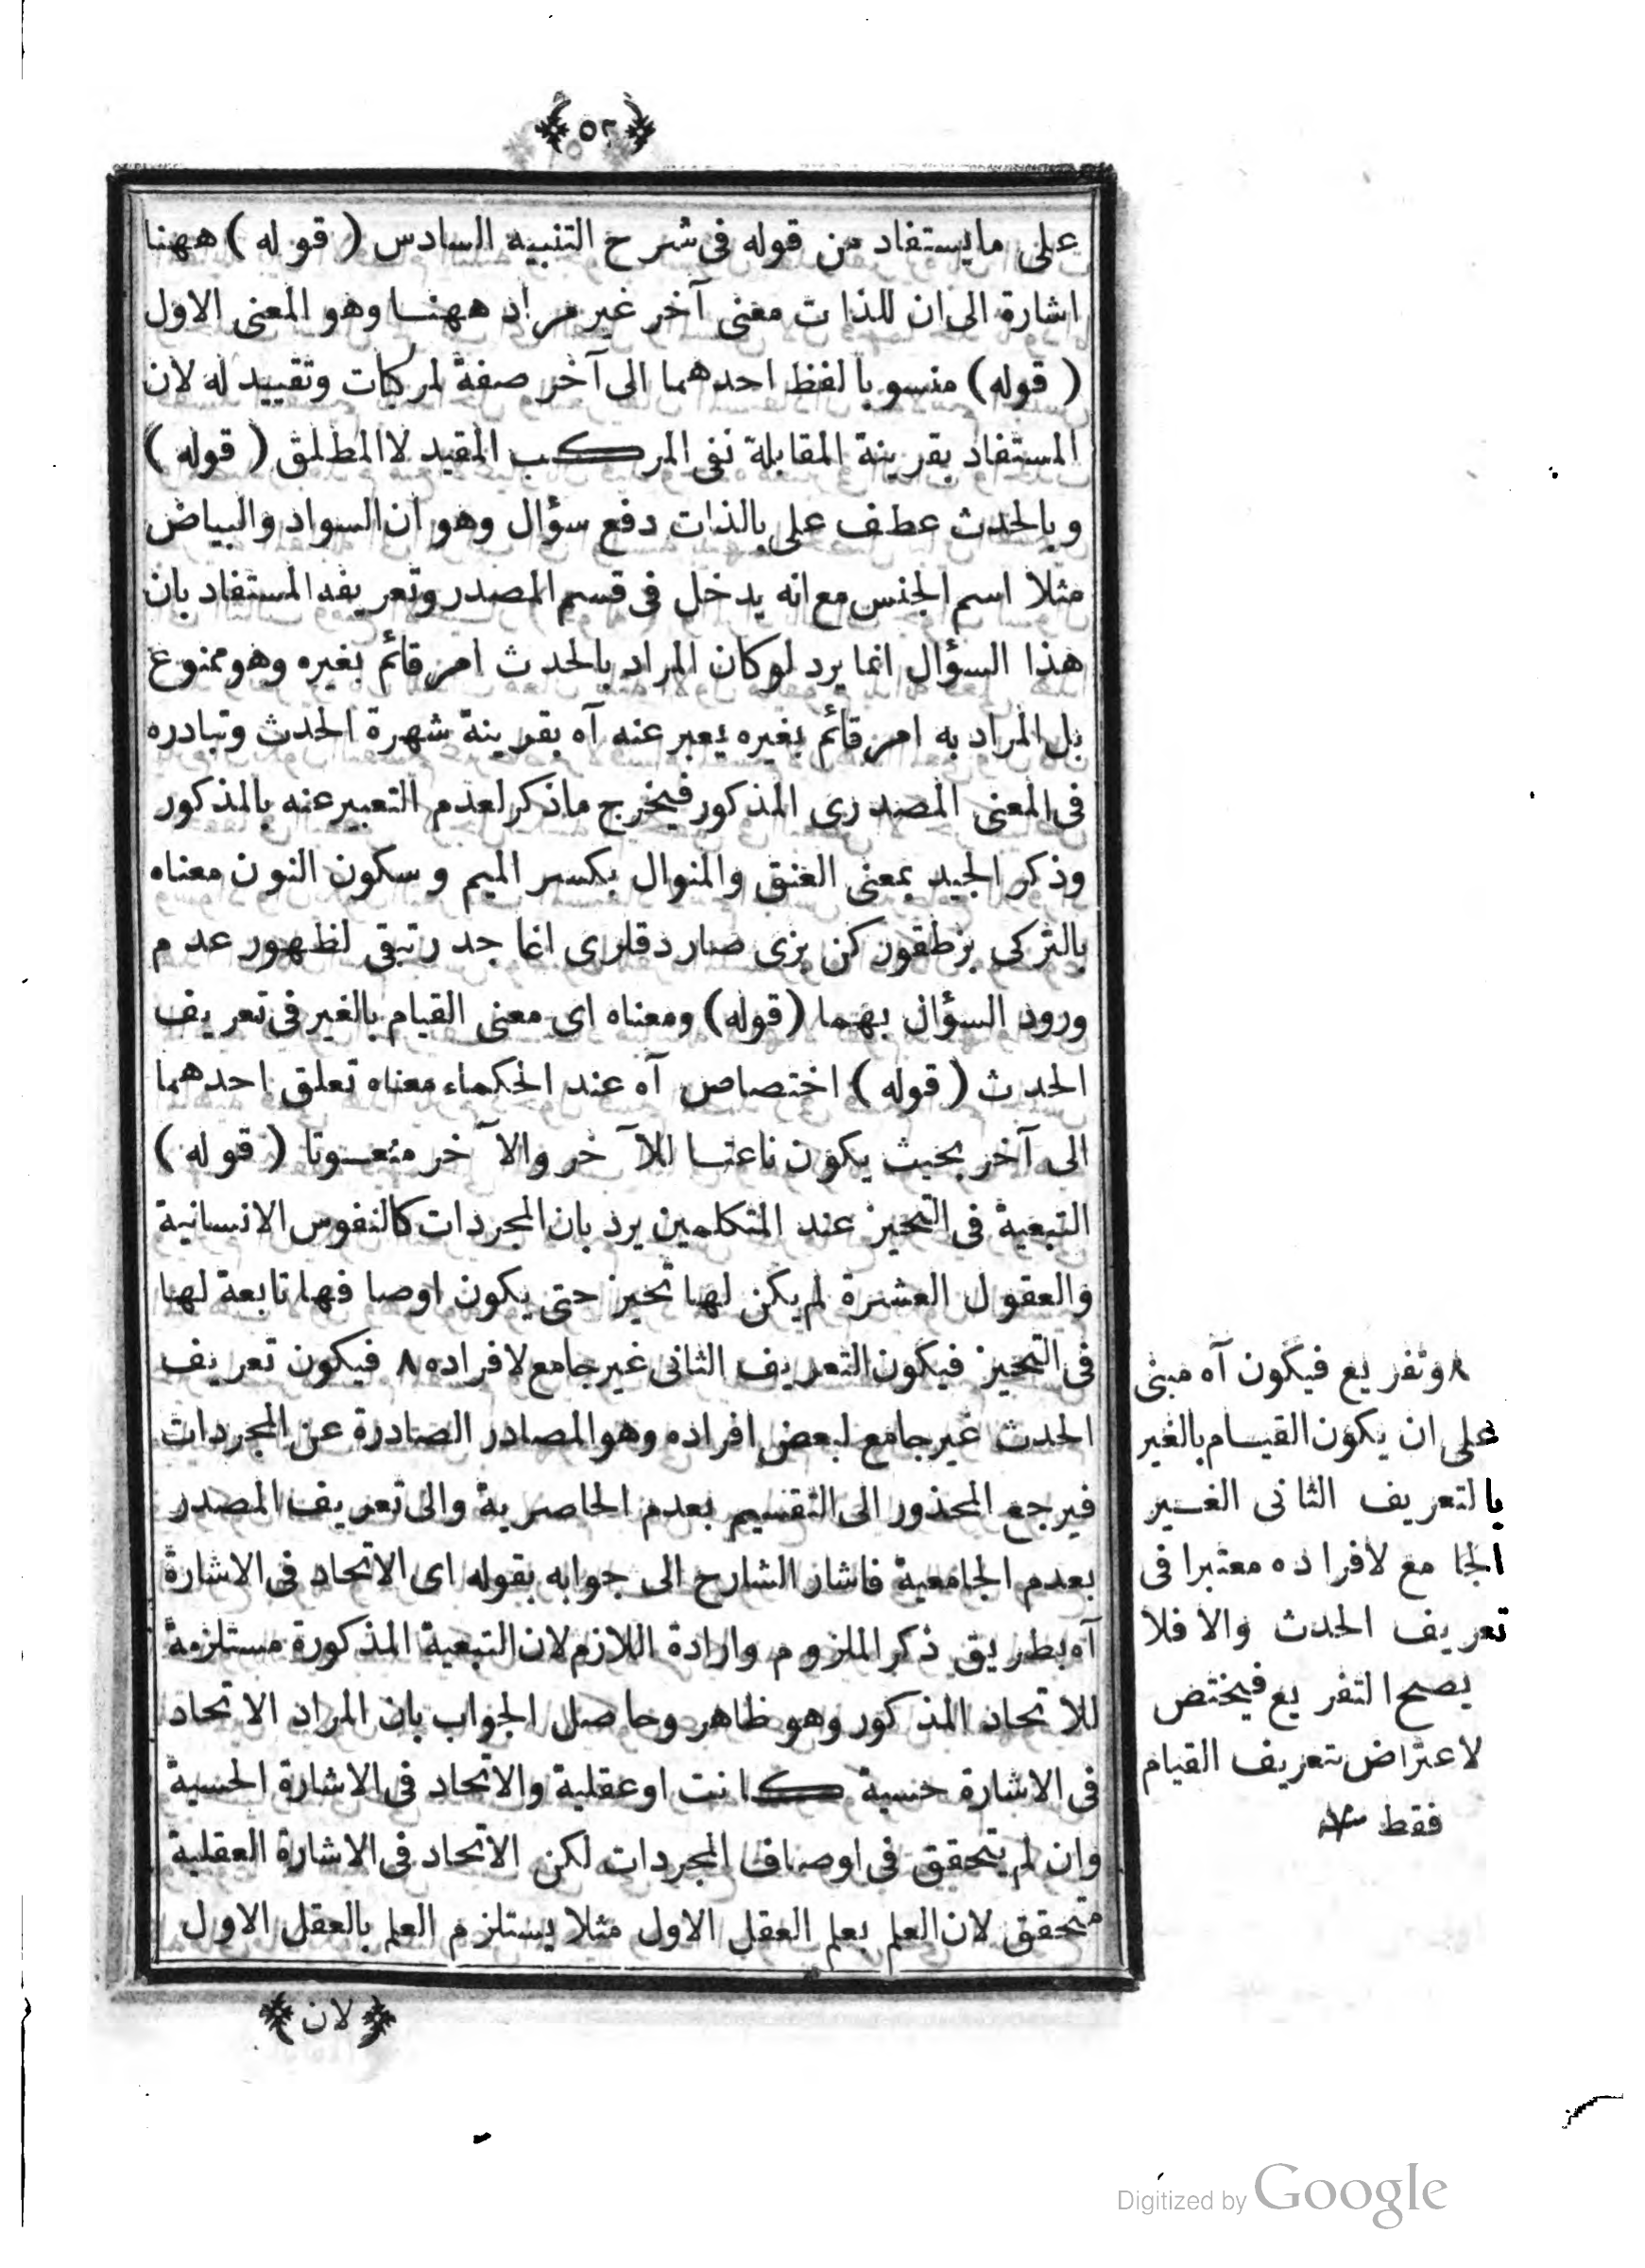 ﴿٥٢﴾
على مايستفاد من قوله فى شرح التنبيه السادس ( قوله ) ههنا
اشارة الى ان للذات معنى آخر غير مراد ههنا وهو المعنى الاول
( قوله ) منسوبا لفظ احدهما الى آخر صفة لمركبات وتقييد له لان
المستفاد بقرينة المقابلة نفى المركب المقيد لا المطلق ( قوله )
وبالحدث عطف على بالذات دفع سؤال وهو ان السواد والبياض
مثلا اسم الجنس مع انه يدخل فى قسم المصدر وتعريفه المستفاد بان
هذا السؤال انما يرد لو كان المراد بالحدث امر قائم بغيره وهو ممنوع
بل المراد به امر قائم بغيره يعبر عنه آه بقرينة شهرة الحدث وتبادره
فى المعنى المصدرى المذكور فيخرج ماذكر لعدم التعبير عنه بالمذكور
وذكر الجيد بمعنى العنق والمنوال بكسر الميم وسكون النون معناه
بالتركى بز طقوركن بزى صار دقلرى اغاجدر تبقى لظهور عدم
ورود السؤال بهما (قوله) ومعناه اى معنى القيام بالغير فى تعريف
الحدث ( قوله ) اختصاص آه عند الحكماء معناه تعلق احدهما
الى آخر بحيث يكون ناعتا للآخر والآخر منعوتا ( قوله )
التبعية فى التحيز عند المتكلمين يرد بان المجردات كالنفوس الانسانية
والعقول العشرة لم يكن لها تحيز حتى يكون اوصافها تابعة لها
فى التحيز فيكون التعريف الثانى غير جامع لافراده ٨ فيكون تعريف
الحدث غير جامع لبعض افراده وهو المصادر الصادرة عن المجردات
فيرجع المحذور الى التقسيم بعدم الحاصرية والى تعريف المصدر
بعدم الجامعية فاشار الشارح الى جوابه بقوله اى الاتحاد فى الاشارة
آه بطريق ذكر الملزوم وارادة اللازم لان التبعية المذكورة مستلزمة
للاتحاد المذكور وهو ظاهر وحاصل الجواب بان المراد الاتحاد
فى الاشارة حسية كانت او عقلية والاتحاد فى الاشارة الحسية
وان لم يتحقق فى اوصاف المجردات لكن الاتحاد فى الاشارة العقلية
متحقق لان العلم بعلم العقل الاول مثلا يستلزم العلم بالعقل الاول
﴿لان﴾
٨ وتفريع فيكون آه مبنى
على ان يكون القيام بالغير
بالتعريف الثانى الغير
الجامع لافراده معتبرا فى
تعريف الحدث والا فلا
يصح التفريع فيختص
لاعتراض بتعريف القيام
فقط
Digitized by Google